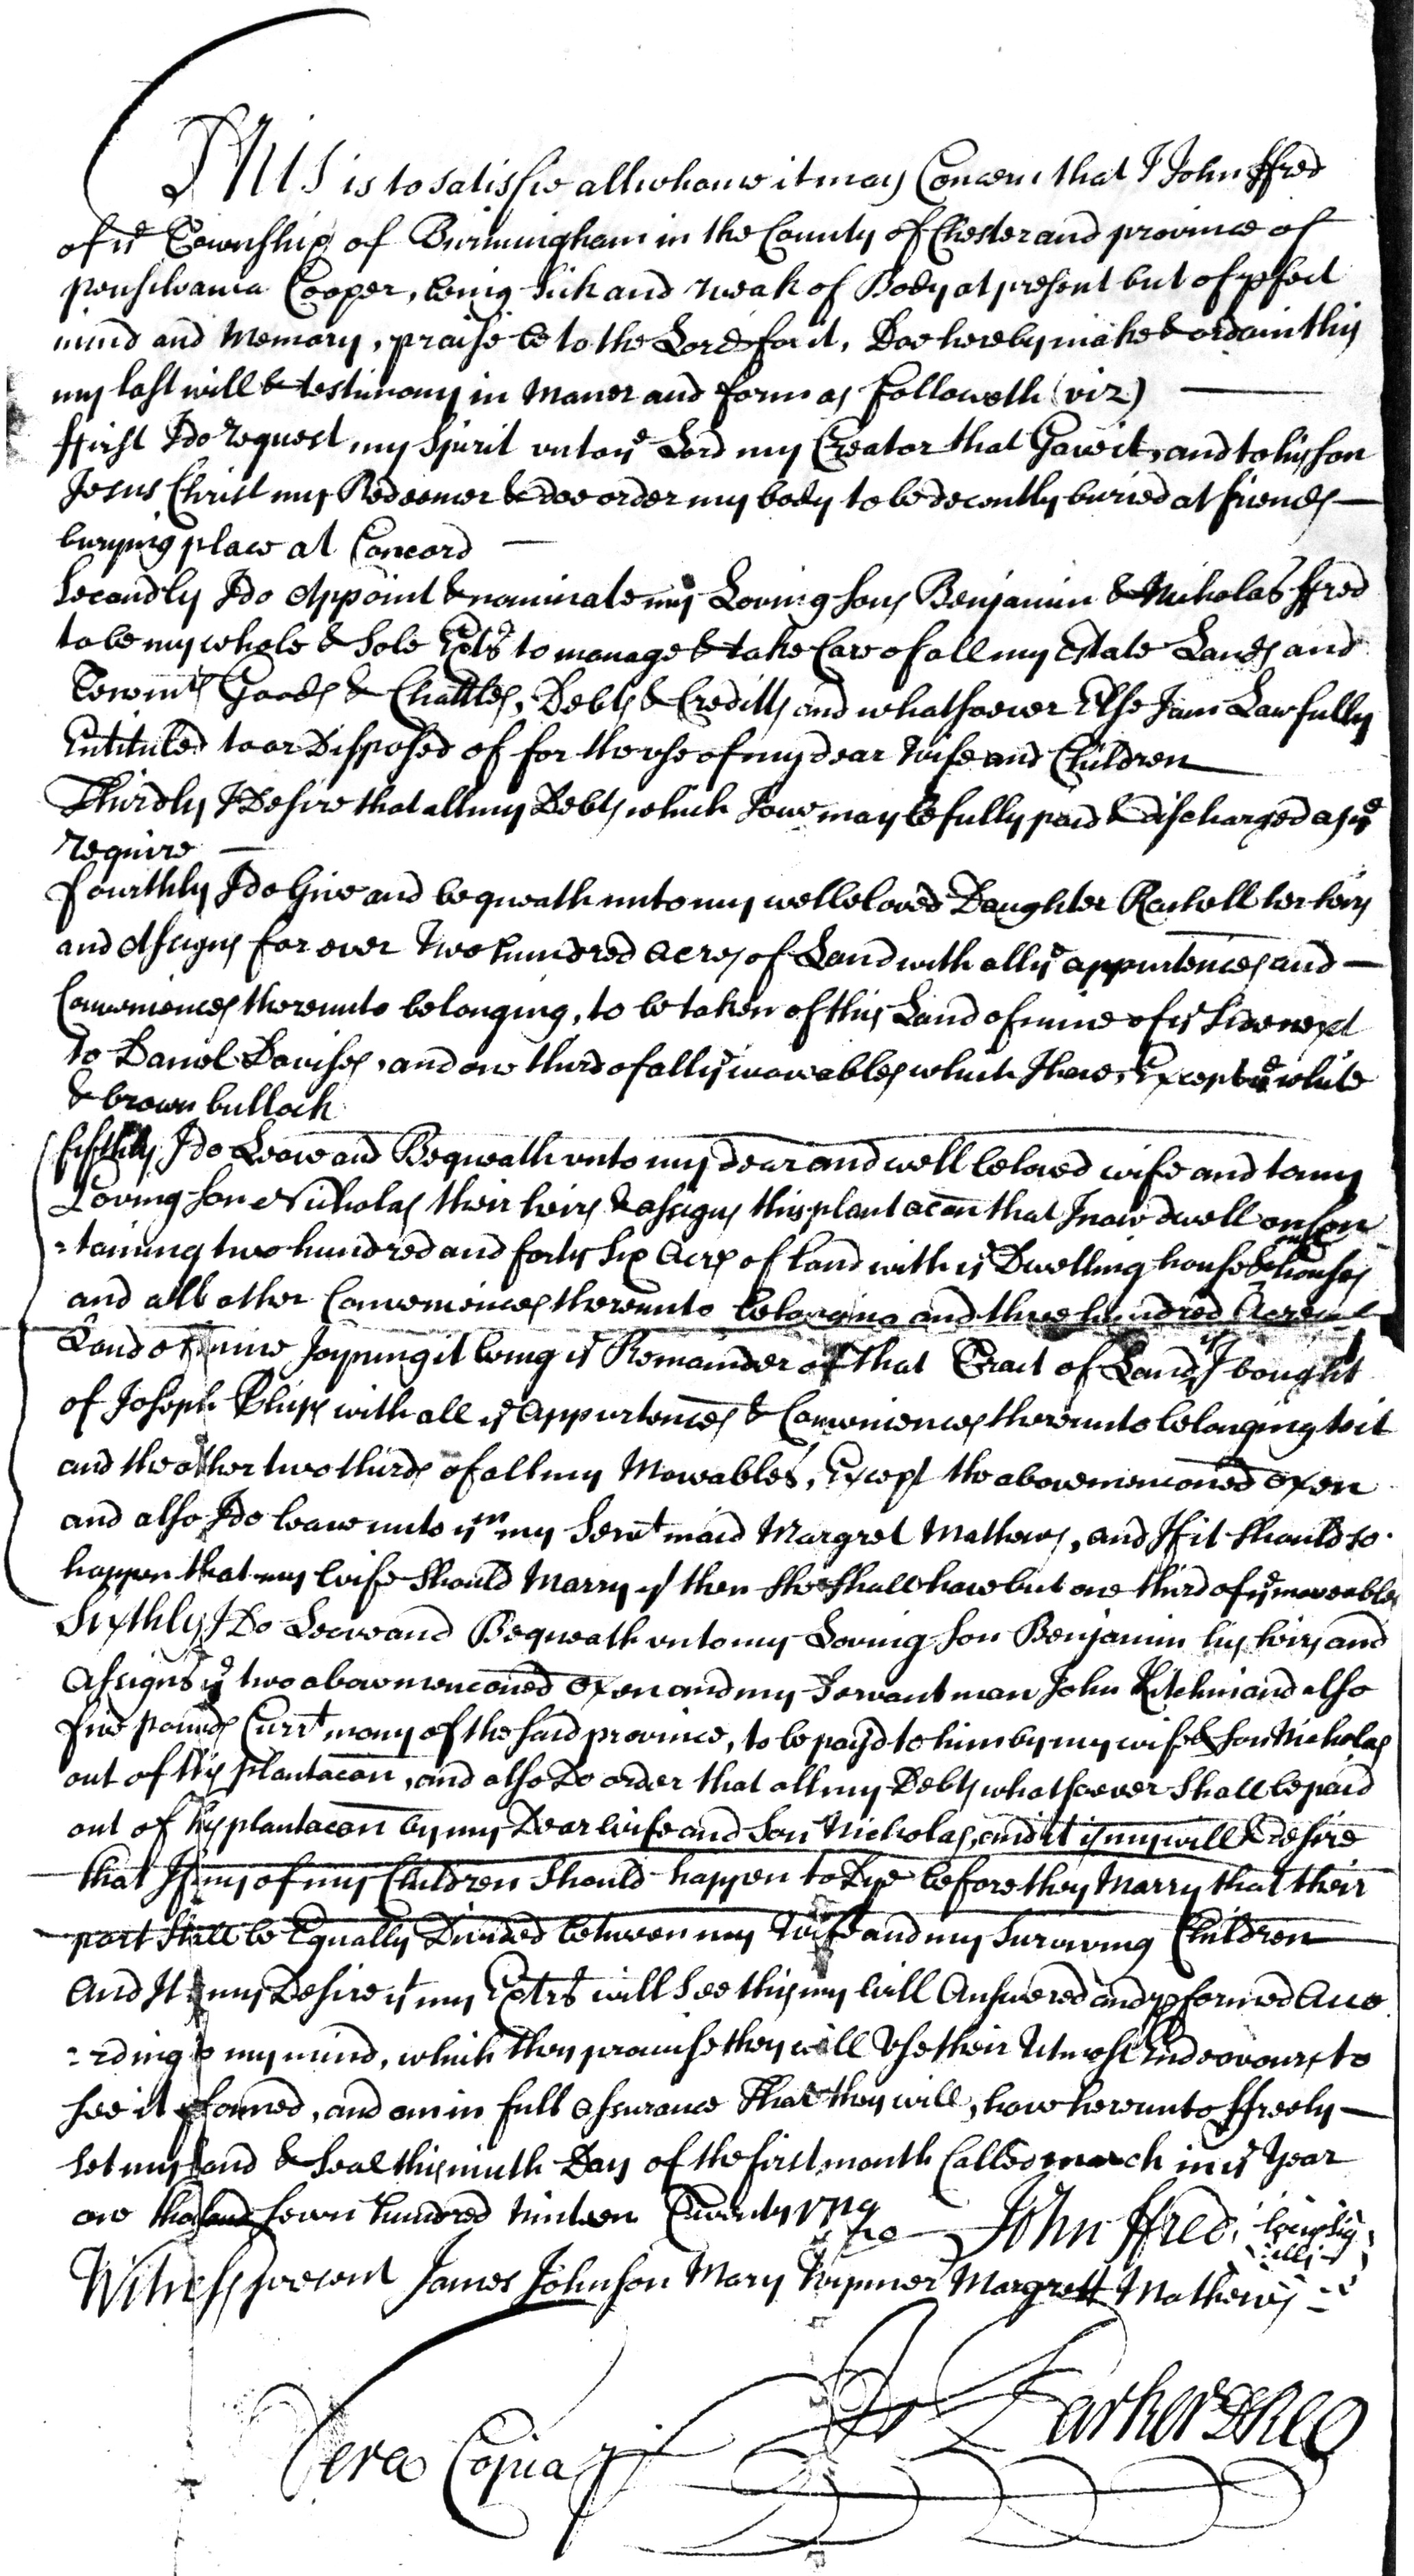 THIS is to satisfie all whome it may Concern that I John ffred
of ye Township of Birmingham in the County of Chester and province of
pensilvania Cooper, being Sick and weak of Body at present but of pfect
mind and Memory, praise be to the Lord for it, Doe hereby make & ordain this
my last will & testimony in Maner and form as Followeth (viz)
ffirst I do request my Spirit unto ye Lord my Creator that Gave it, and to his son
Jesus Christ my Redeemer & doe order my body to be decently buried at friends
burying place at Concord
Secondly I do Appoint & nominate my Loving sons Benjamin & Nicholas ffred
to be my whole & Sole Extrs to manage & take Care of all my Estate Lands and
Tenemts Goods & Chattles, Debts & Creditts and whatsoever Else I am Lawfully
Entituled to or Disposed of for the use of my dear Wife and Children
Thirdly I Desire that all my Debts which I owe may be fully paid & discharged as ye
require
fourthly I do Give and bequeath unto my wellbeloved Daughter Rachell her heirs
and Assigns for ever Two hundred acres of Land with all ye appurtences and
Conveniences thereunto belonging, to be taken of this Land of mine of ye Side next
to Daniel Davises, and one third of all ye moveables which I have, Except ye white
& brown bullock
fifthly I do Leave and Bequeath unto my dear and well beloved wife and to my
Loving son Nicholas their heirs & assigns this plantacon that I now dwell on Con
=taining two hundred and forty Six Acres of Land with ye Dwelling house & outhouses
and all other Conveniences thereunto belonging and three hundred Acres of
Land of mine Joyning it being ye Remainder of that Tract of Land yt I bought
of Joseph Phips with all ye Appurtences & Conveniences thereunto belonging to it
and the other two thirds of all my Moveables, Except the above mencioned oxen
and also I do leave unto ym my Servt maid Margret Mathews, and If it Should so
happen that my wife Should Marry yt then She Shall have but one third of ye moveables
Sixthly I Do Leave and Bequeath unto my Loving Son Benjamin his heirs and
Assigns ye two above mencioned oxen and my Servant man John Kitchin and also
five pounds Currt mony of the said province, to be payd to him by my wife & son Nicholas
out of this plantacon, and also Do order that all my Debts whatsoever Shall be paid
out of this plantacon by my Dear wife and Son Nicholas, and it is my will & desire
that If any of my Children Should happen to Dye before they Marry that their
part Shall be Equally Divided between my Wife and my Surviving Children
And It is my Desire yt my Extrs will See this my will Answered and pformed Acco
=rding to my mind, which they promise they will Use their Utmost Endeavours to
see it pformed, and am in full assurance That they will, have hereunto ffreely
set my hand & seal this ninth Day of the first month Called march in ye Year
one thousand seven hundred Ninteen Twenty
John ffred
Witness present James Johnson Mary Wymner Margrett Mathews
Vera Copia
Jo Parker DReg